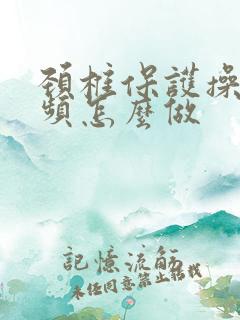 頸椎保護操
頻怎麼做
記憶流觞
未任同意禁止轉載